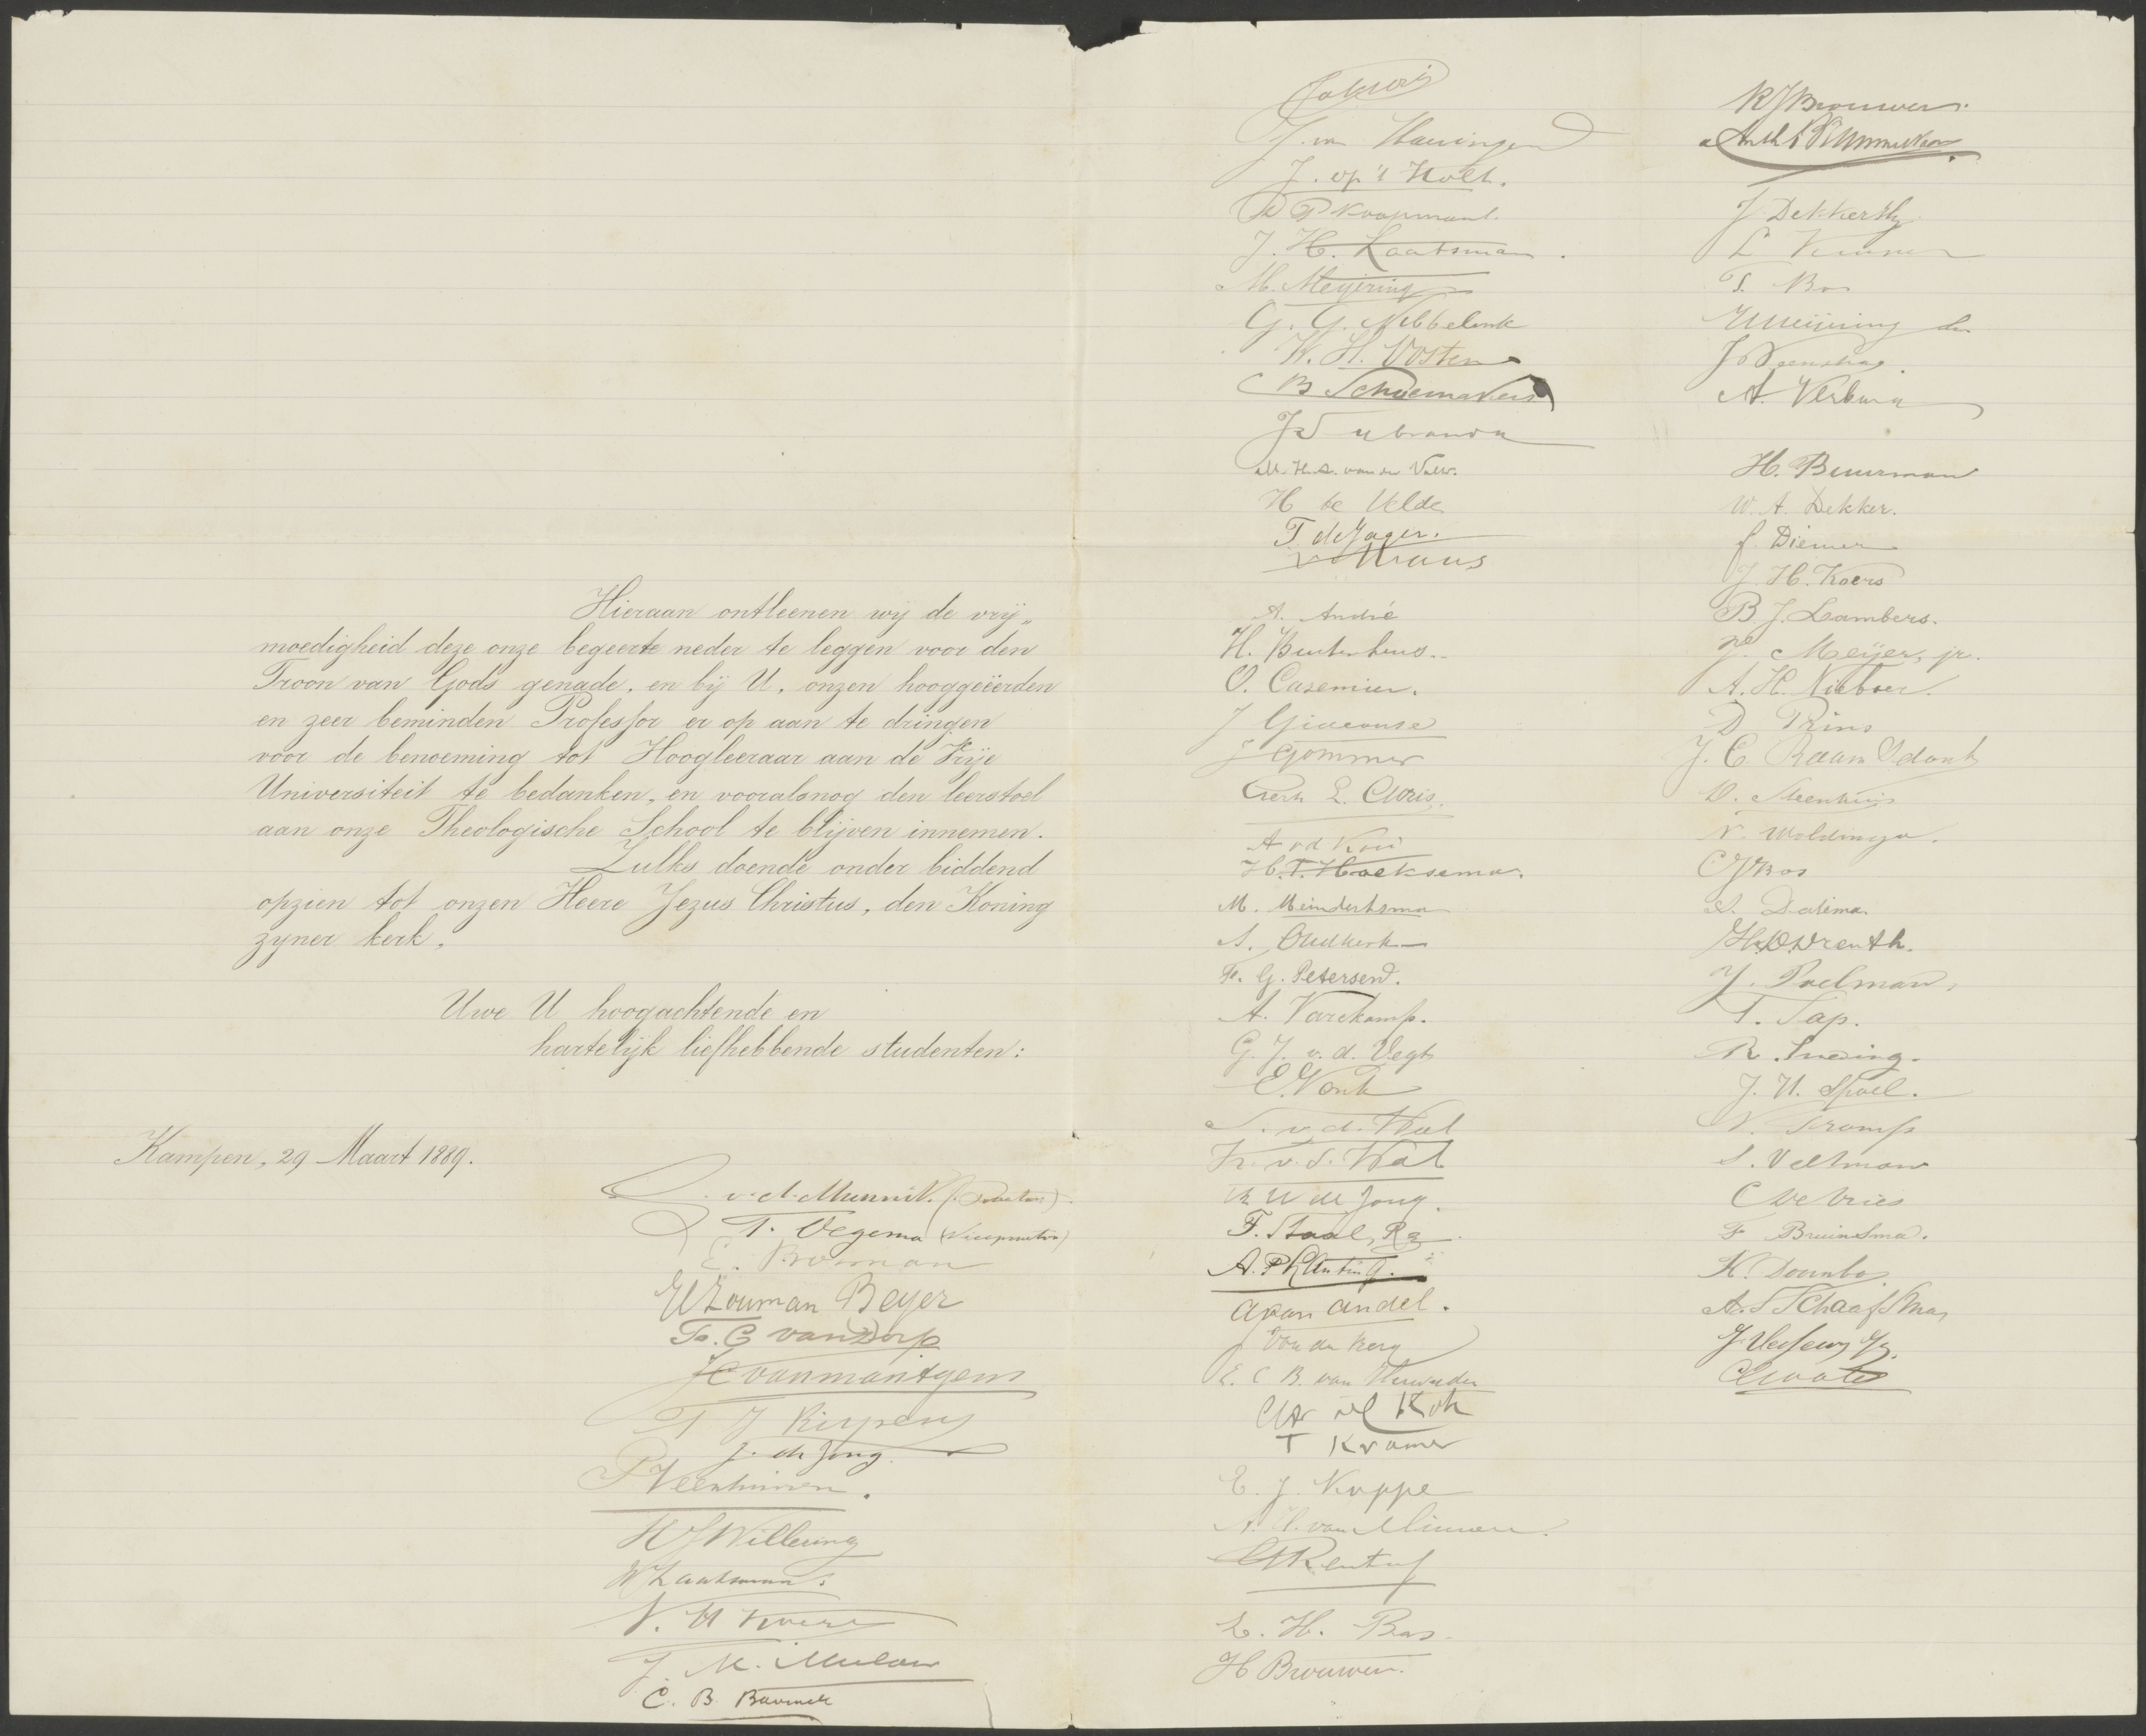 Hieraan ontleenen wij de vrij„
moedigheid deze onze begeerte neder te leggen voor den
Troon van Gods genade, en bij U, onzen hooggeëerden
en zeer beminden Professor er op aan te dringen
voor de benoeming tot Hoogleeraar aan de Vrije
Universiteit te bedanken, en vooralsnog den leerstoel
aan onze Theologische School te blijven innemen.
Zulks doende onder biddend
opzien tot onzen Heere Jezus Christus, den Koning
zyner kerk,
Uwe U hoogachtende en
hartelijk liefhebbende studenten:
Kampen, 29 Maart 1889.
v. d. Munnik (Praetor)
T. Oegema (Vicepraetor)
E. Broman
Zouman Beyer
van Dorp
van Mantgem
T J Kuypens
J. de Jong
P Veenhuizen.
H J Willering
W Laatsman.
J. M. Mulder
C. B. Bavinck
J. van Haeringen
J. op 't Holt.
D P Koopmans.
J. H. Laatsman.
M. Meijering
G. G. Nibbelink
K. H. Vosten
B Schoemakers
J Wybranda
H te Velde
T. de Jager.
Kraus
A. André
H. Buitenhuis.
O. Casemier.
J Gideonse
J Gommer
A v d Kooi
H. T. Hoeksema.
M. Meindertsma
S. Oudkerk
F. G. Petersen.
A. Varekamp.
G. J. v. d. Vegt
E. Vonk
S. v. d. Wal
K. v. d. Wal
de Jong.
F. Staal, Pz.
A. P Lanting.
A van Andel.
J van den Berg
T Kramer
E. J. Koppe
A. H. van Minnen.
L. H. Bas.
H Brouwer.
R J Brouwer.
J Dekker Hz
T. Bos
J Veenstra.
A. Verbura
H. Buurman
W. A. Dekker.
J. Diemer
J. H. Koers
B. J. Lambers.
Meijer, jr.
A. H. Nieboer.
D Prins
J. C. Raam
D. Steenhuis
N. Woldinga.
C J Bos
S. Datema.
H. D. Drenth.
J. Poelman,
T. Sap.
R. Smeding.
J. H. Spoel.
N. Tromp
S. Veltman
C de Vries
F Bruinsma.
K. Doornbos.
A. S Schaafsma,
J Wessem Jz.